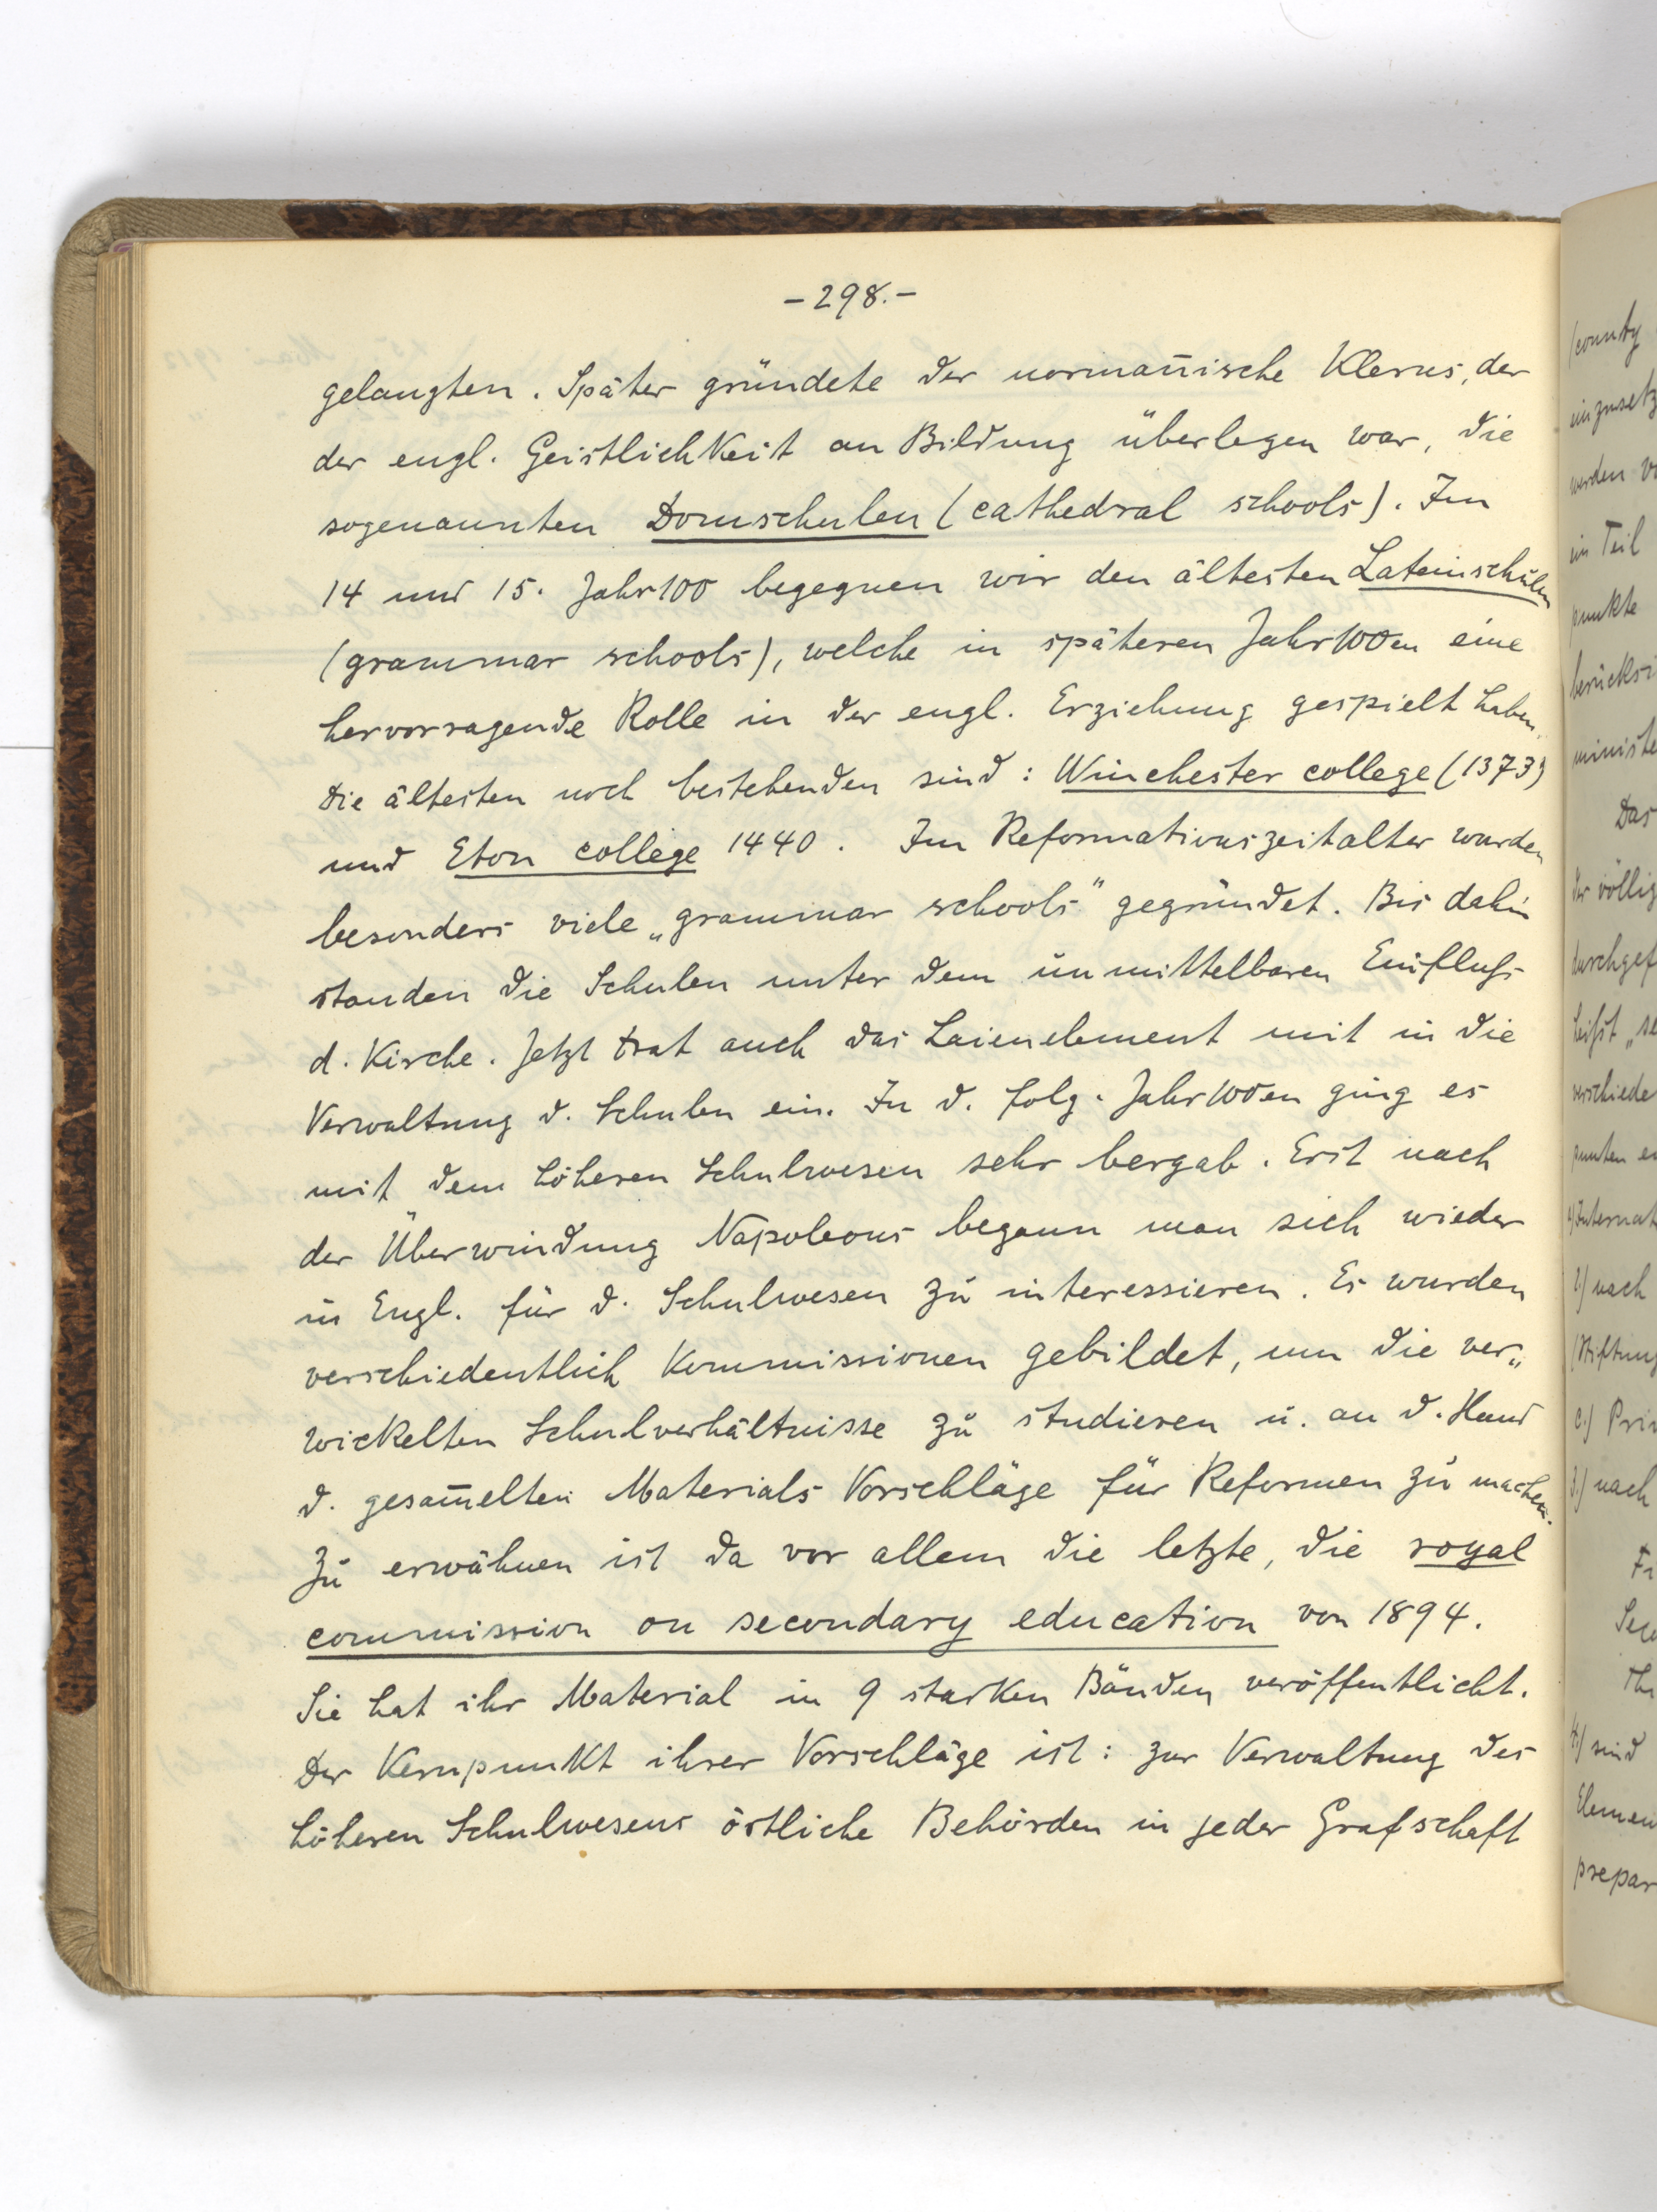 -298.-
gelangten. Später gründete der norman̄ische Klerus, der
der engl. Geistlichkeit an Bildung überlegen war, die
sogenannten Domschulen (cathedral schools). Im
14 und 15. Jahr100 begegnen wir den ältesten Lateinschulen
(grammar schools), welche in späteren Jahr100en eine
hervorragende Rolle in der engl. Erziehung gespielt haben.
Die ältesten noch bestehenden sind: Winchester college (1373)
und Eton college 1440. Im Reformationszeitalter wurden
besonders viele „grammar schools" gegründet. Bis dahin
standen die Schulen unter dem unmittelbaren Einfluß
d. Kirche. Jetzt trat auch das Laienelement mit in die
Verwaltung d. Schulen ein. In d. folg. Jahr100en ging es
mit dem höheren Schulwesen sehr bergab. Erst nach
der Überwindung Napoleons begann man sich wieder
in Engl. für d. Schulwesen zu interessieren. Es wurden
verschiedentlich Kommissionen gebildet, um die ver„
wickelten Schulverhältnisse zu studieren u. an d. Hand
d. gesam̄elten Materials Vorschläge für Reformen zu machen.
Zu erwähnen ist da vor allem die letzte, die royal
commission on secondary education von 1894.
Sie hat ihr Material in 9 starken Bänden veröffentlicht.
Der Kernpunkt ihrer Vorschläge ist: zur Verwaltung des
höheren Schulwesens örtliche Behörden in jeder Grafschaft
(county
einzusetz
werden vo
ein Teil
punkte
berücksi
ministe
Das
der völlig
durchgef
heißt „se
verschiede
punkten
1) Internat
2) nach
(Stiftung
c.) Pri
3.) nach
4.) sind
Elemen
prepar